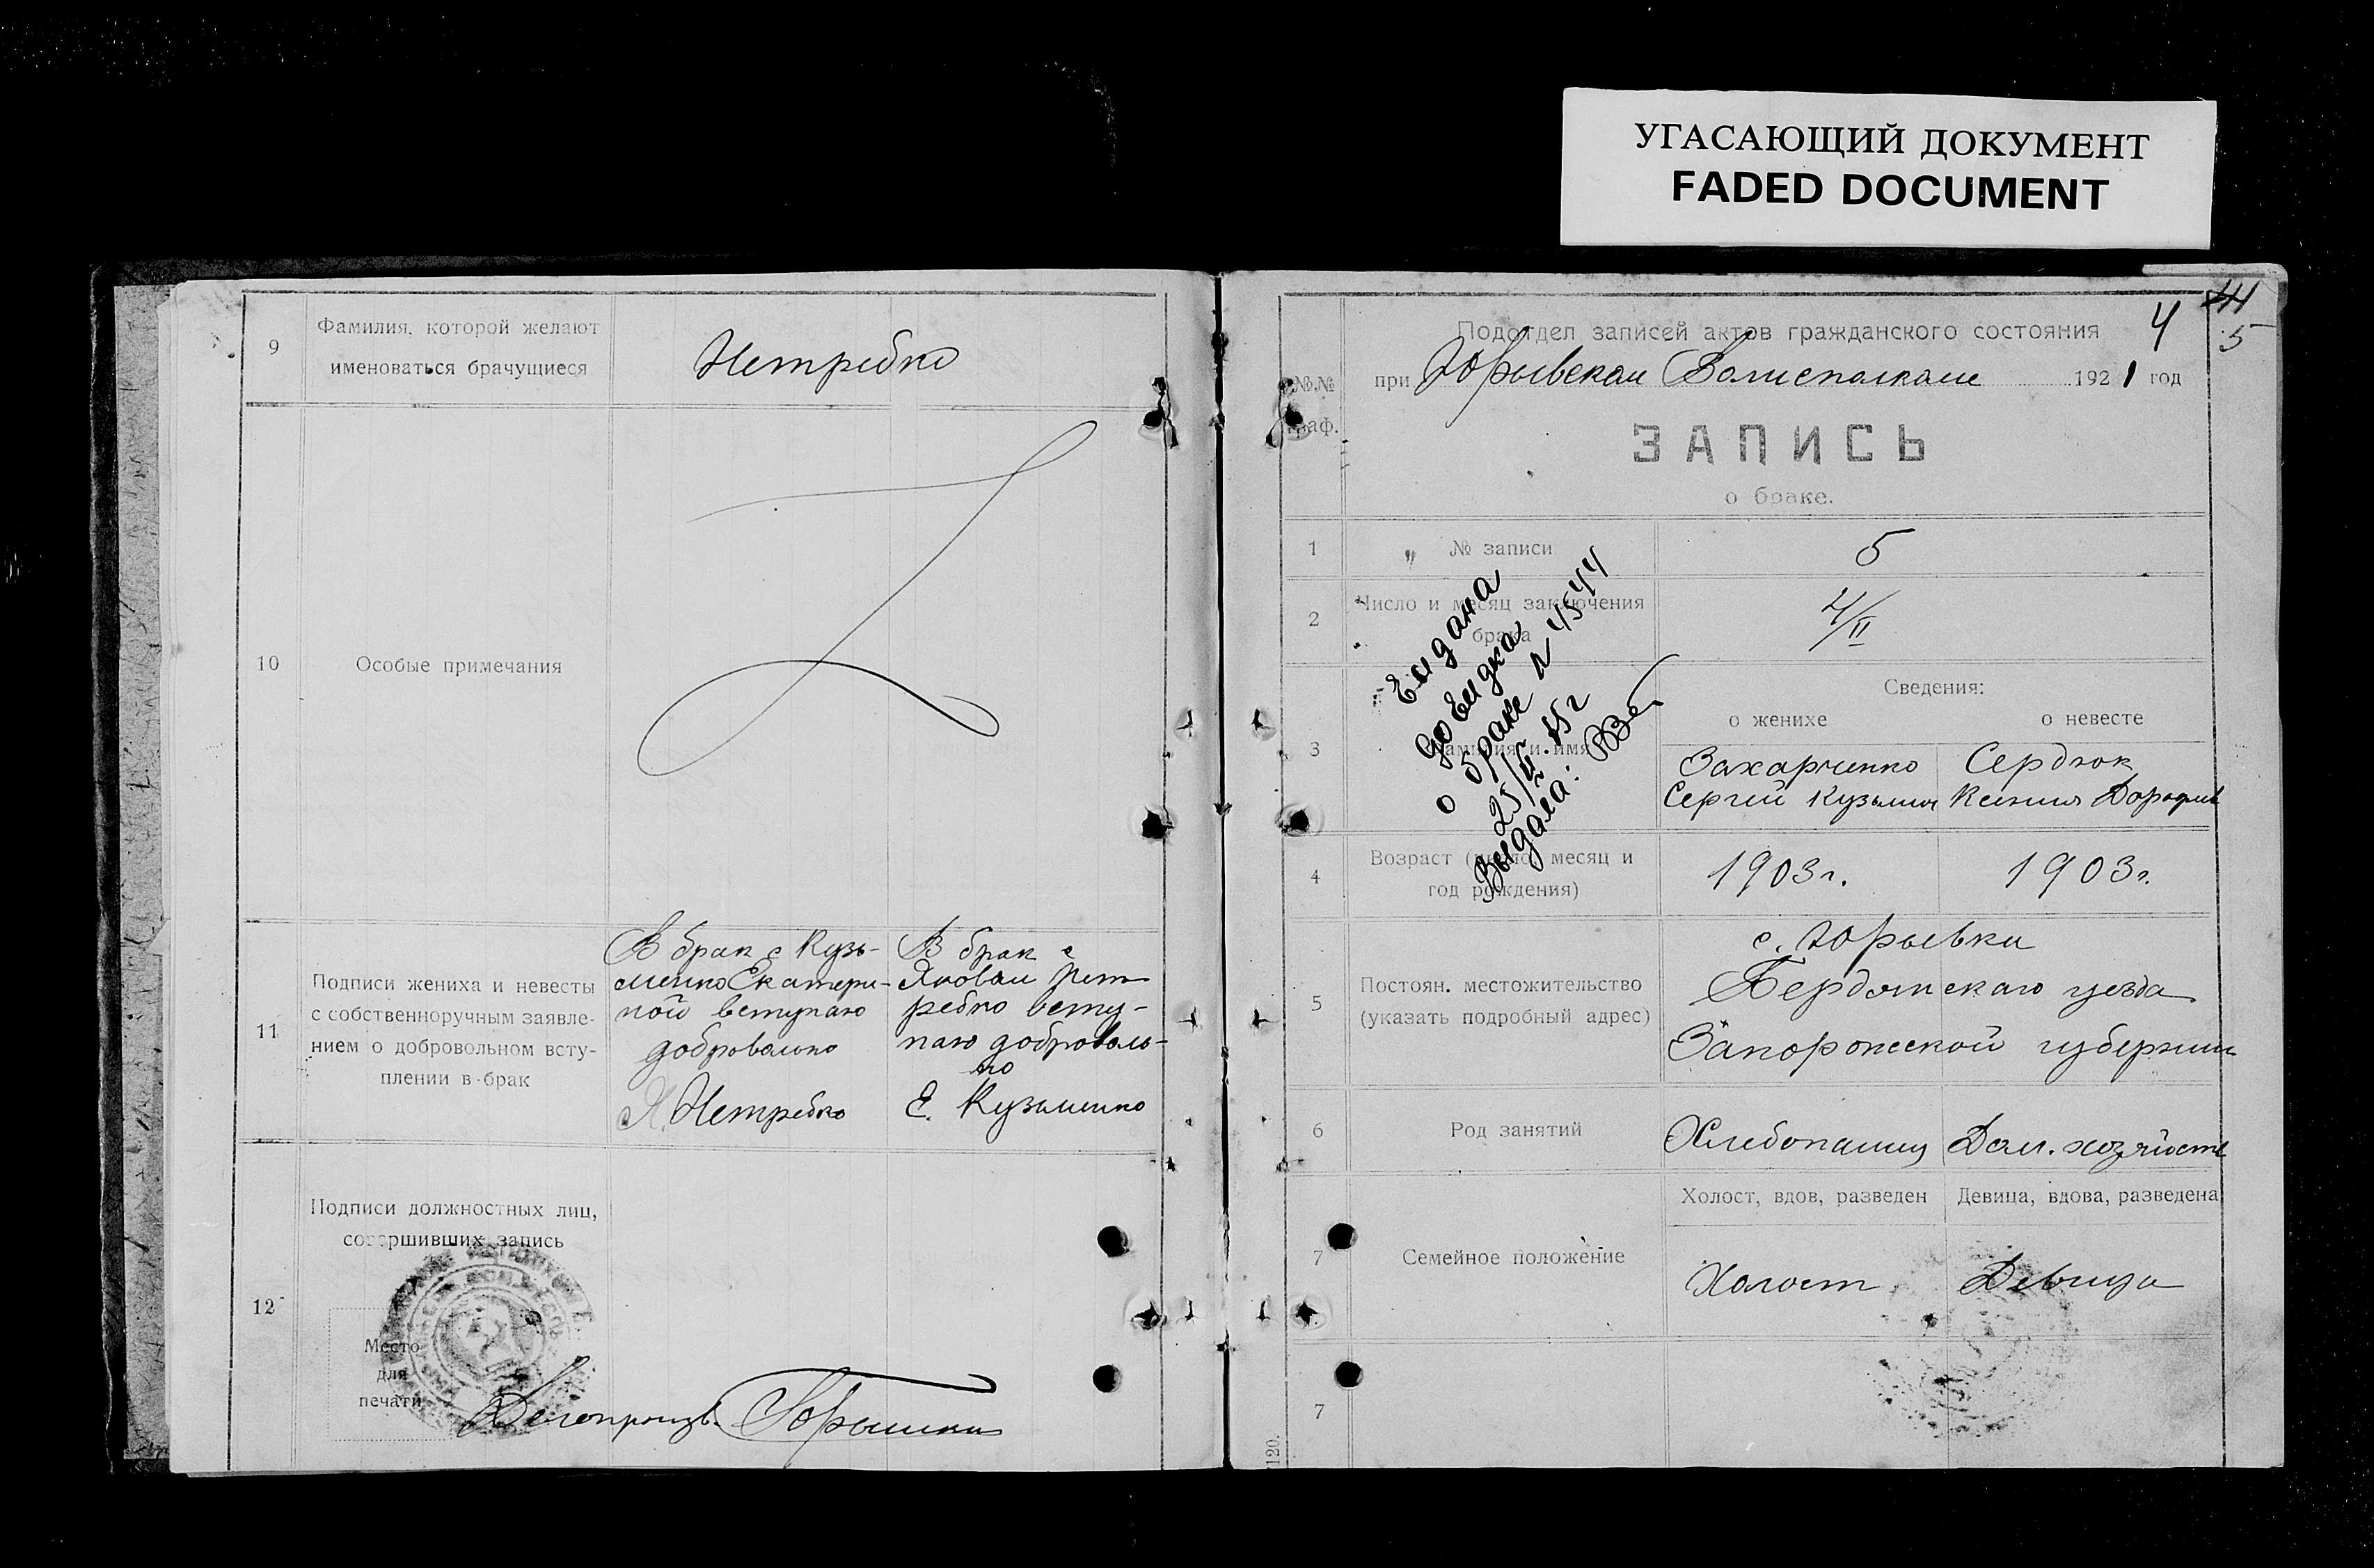 УГАСАЮЩИЙ ДОКУМЕНТ
FADED DOCUMENT
9
Фамилия, которой желают
именоваться брачущиеся
Нетребко
10
Особые примечания
11
Подписи жениха и невесты
с собственноручным заявле-
нием о добровольном всту-
плении в брак
В брак с Кузь-
менко Екатери-
ной вступаю
добровольно
Я. Нетребко
В брак с
Яковом Нет
ребко всту-
паю доброволь-
но
Е. Кузьменко
12
Подписи должностных лиц,
совершивших запись
Место
для
печати
Делопроизв.
4
5
Подотдел записей актов гражданского состояния
№№
граф.
при Юрьевском Волисполкоме 1921 год
ЗАПИСЬ
о браке.
1
№ записи
5
2
Число и месяц заключения
брака
4/II
3
Фамилия и имя
Сведения:
о женихе
о невесте
Захарченко
Сергей Кузьмич
Сердюк
Ксения Дорофеев
Выдана
о браке
Выдала:
4
Возраст (число, месяц и
год рождения)
1903г.
1903г.
5
Постоян. местожительство
(указать подробный адрес)
с. Юрьевки
Бердянского уезда
Запорожской губернии
6
Род занятий
Хлебопашец
Дом. хозяйств
7
Семейное положение
Холост, вдов, разведен
Девица, вдова, разведена
Холост
Девица
7
120.